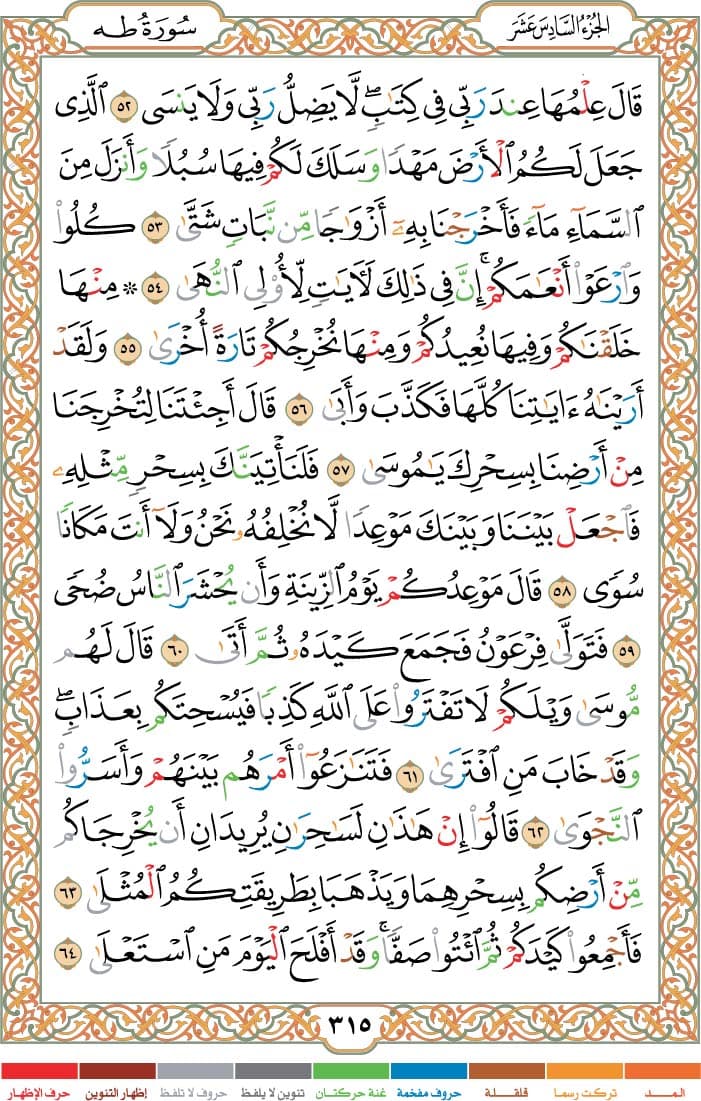 الجزء السادس عشر
سورة طه
قَالَ عِلْمُهَا عِندَ رَبِّي فِي كِتَٰبٖۖ لَّا يَضِلُّ رَبِّي وَلَا يَنسَى ٥٢ ٱلَّذِي
جَعَلَ لَكُمُ ٱلۡأَرۡضَ مَهۡدٗا وَسَلَكَ لَكُمۡ فِيهَا سُبُلٗا وَأَنزَلَ مِنَ
ٱلسَّمَآءِ مَآءٗ فَأَخۡرَجۡنَا بِهِۦٓ أَزۡوَٰجٗا مِّن نَّبَاتٖ شَتَّىٰ ٥٣ كُلُواْ
وَٱرۡعَوۡاْ أَنۡعَٰمَكُمۡۚ إِنَّ فِي ذَٰلِكَ لَأٓيَٰتٖ لِّأُوْلِي ٱلنُّهَىٰ ٥٤ ۞ مِنۡهَا
خَلَقۡنَٰكُمۡ وَفِيهَا نُعِيدُكُمۡ وَمِنۡهَا نُخۡرِجُكُمۡ تَارَةً أُخۡرَىٰ ٥٥ وَلَقَدۡ
أَرَيۡنَٰهُ ءَايَٰتِنَا كُلَّهَا فَكَذَّبَ وَأَبَىٰ ٥٦ قَالَ أَجِئۡتَنَا لِتُخۡرِجَنَا
مِنۡ أَرۡضِنَا بِسِحۡرِكَ يَٰمُوسَىٰ ٥٧ فَلَنَأۡتِيَنَّكَ بِسِحۡرٖ مِّثۡلِهِۦ
فَٱجۡعَلۡ بَيۡنَنَا وَبَيۡنَكَ مَوۡعِدٗا لَّا نُخۡلِفُهُۥ نَحۡنُ وَلَآ أَنتَ مَكَانٗا
سُوٗى ٥٨ قَالَ مَوۡعِدُكُمۡ يَوۡمُ ٱلزِّينَةِ وَأَن يُحۡشَرَ ٱلنَّاسُ ضُحٗى
٥٩ فَتَوَلَّىٰ فِرۡعَوۡنُ فَجَمَعَ كَيۡدَهُۥ ثُمَّ أَتَىٰ ٦٠ قَالَ لَهُم
مُّوسَىٰ وَيۡلَكُمۡ لَا تَفۡتَرُواْ عَلَى ٱللَّهِ كَذِبٗا فَيُسۡحِتَكُم بِعَذَابٖۖ
وَقَدۡ خَابَ مَنِ ٱفۡتَرَىٰ ٦١ فَتَنَٰزَعُوٓاْ أَمۡرَهُم بَيۡنَهُمۡ وَأَسَرُّواْ
ٱلنَّجۡوَىٰ ٦٢ قَالُوٓاْ إِنۡ هَٰذَٰنِ لَسَٰحِرَٰنِ يُرِيدَانِ أَن يُخۡرِجَاكُم
مِّنۡ أَرۡضِكُم بِسِحۡرِهِمَا وَيَذۡهَبَا بِطَرِيقَتِكُمُ ٱلۡمُثۡلَىٰ ٦٣
فَأَجۡمِعُواْ كَيۡدَكُمۡ ثُمَّ ٱئۡتُواْ صَفّٗاۚ وَقَدۡ أَفۡلَحَ ٱلۡيَوۡمَ مَنِ ٱسۡتَعۡلَىٰ ٦٤
٣١٥
المــــد تركت رسما قلقلة حروف مفخمة غنة حركتان تنوين لا يلفظ حروف لا تلفظ إظهار التنوين حرف الإظهار